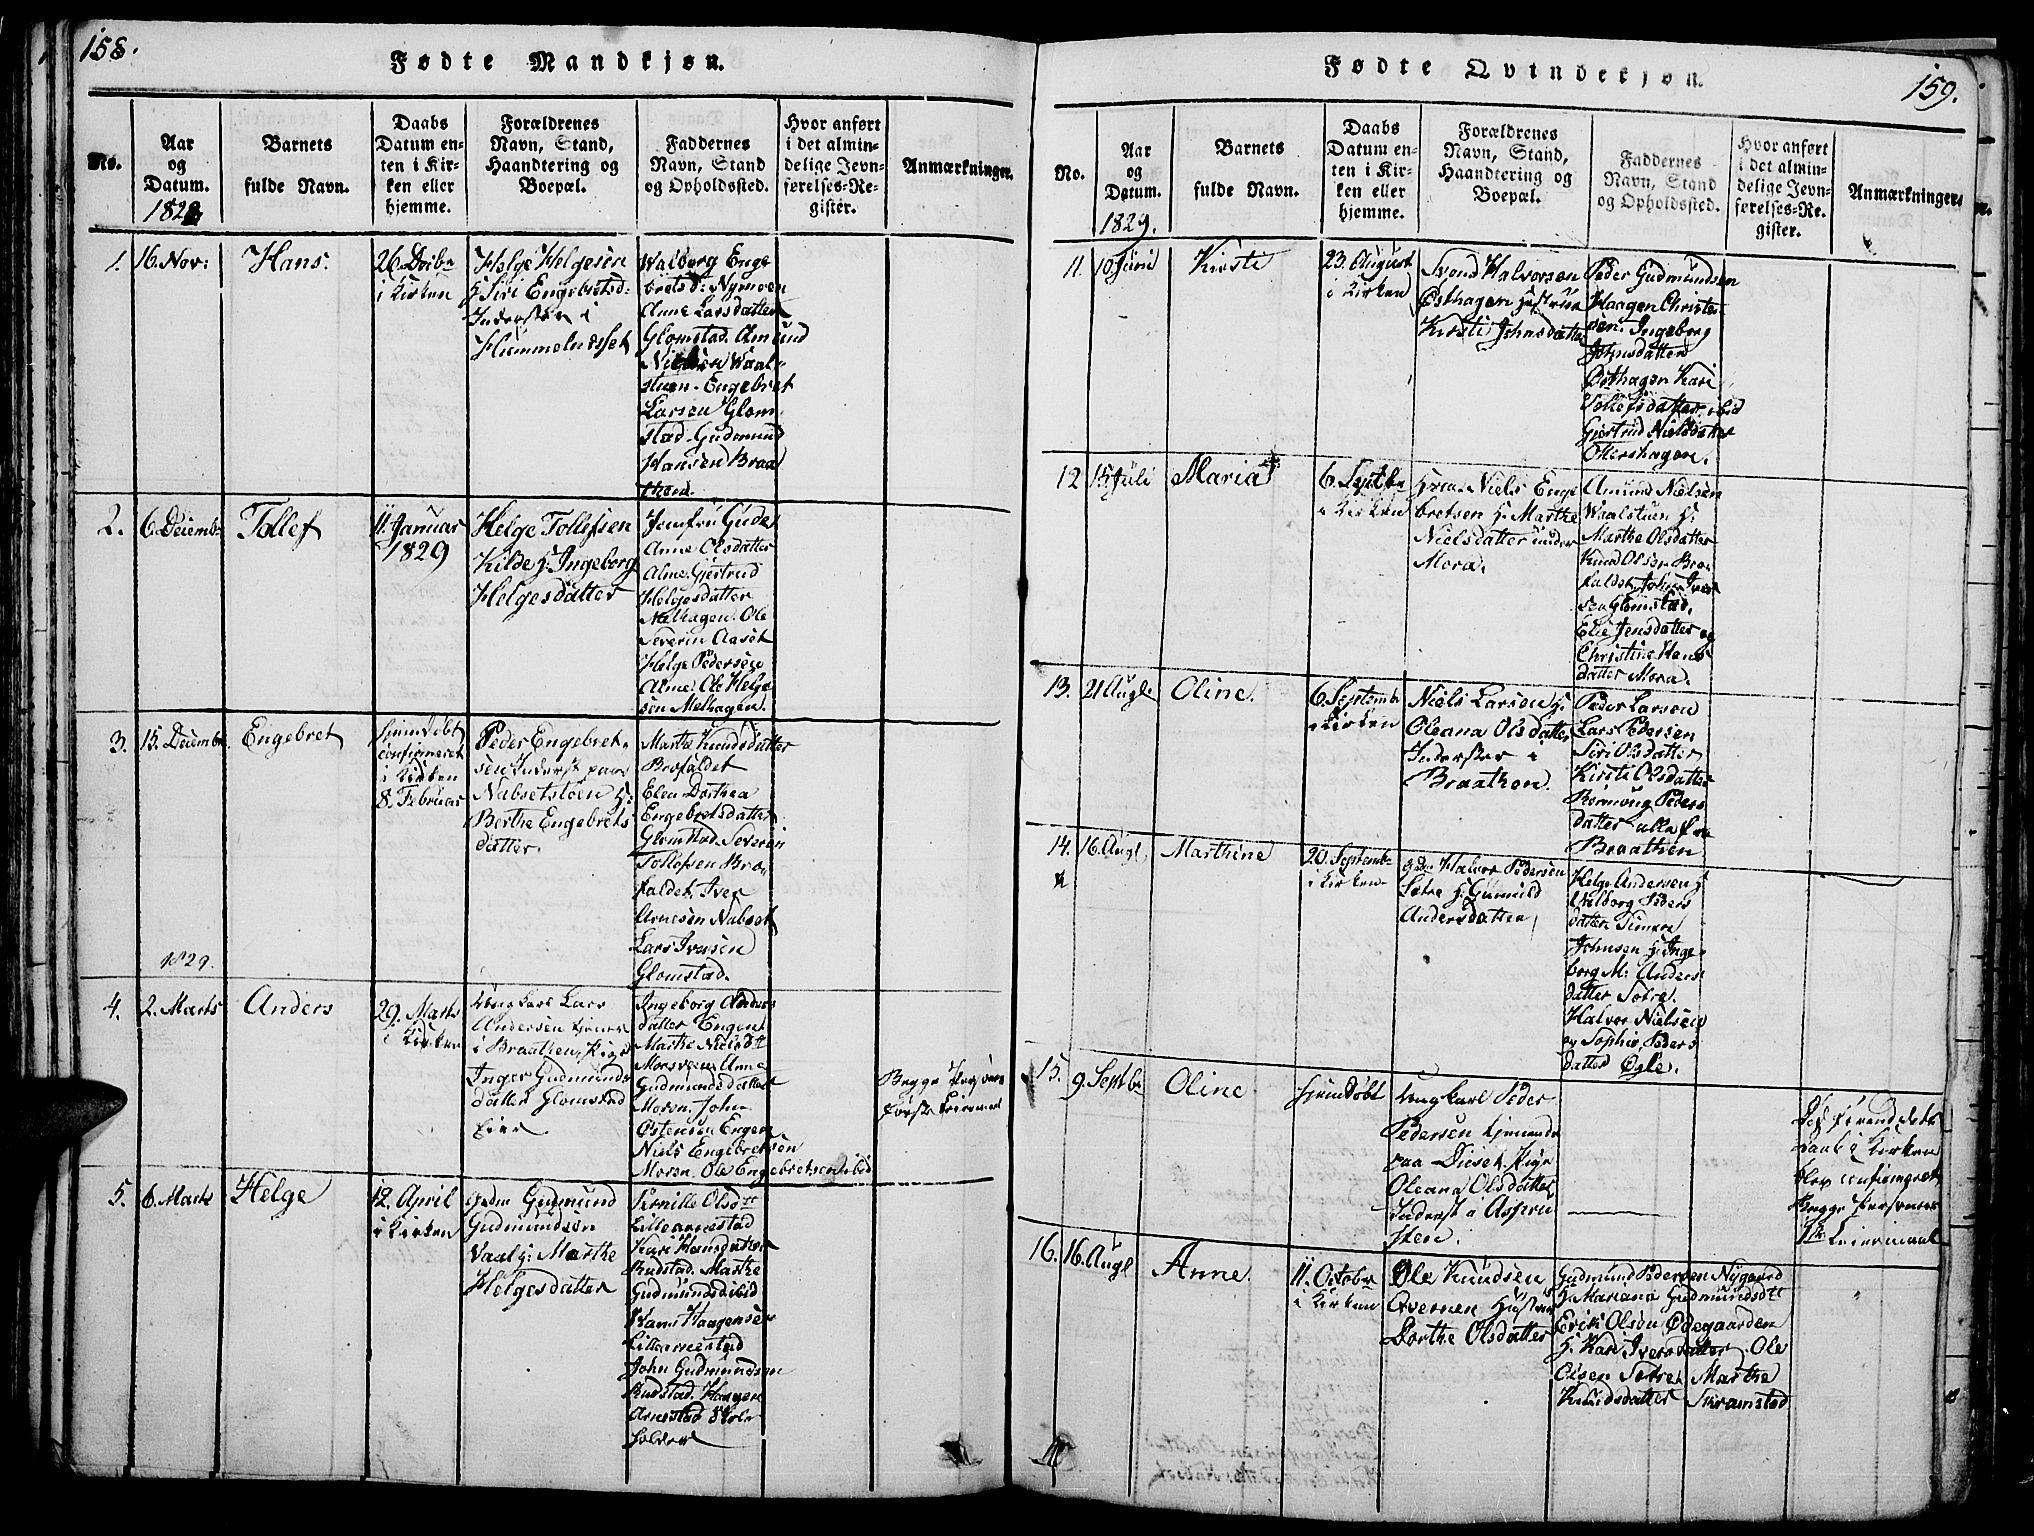 158.
Fødte Mandkjøn.
No.
Aar
og
Datum.
1828
Barnets
fulde Navn.
Daabs
Datum en-
ten i Kir-
ken eller
hjemme.
Forældrenes
Navn, Stand,
Haandtering og
Boepæl.
Faddernes
Navn, Stand
og Opholdssted.
Hvor anført
i det almin-
delige Jevn-
førelses-Re-
gister.
Anmærkninger.
1.
16. Nov:
Hans.
26. Decbr
i Kirken
Helge Helgesen
h: Siri Engebretsd:
Inderster i
Hummelnesset
Walborg Enge
bretsd: Nymoen
Anne Larsdatter
Glomstad. Amund
Nielsen Waal-
stuen. Engebret
Larsen Glom-
stad. Gudmund
Hansen Braa
then.
2.
6. Decembr
Tollef
11. Januar
1829
Helge Tollefsen
Kilde h: Ingeborg
Helgesdatter
Jomfru Gude
Anne Olsdatter
Alme. Gjertrud
Helgesdatter
Melhagen. Ole
Severin Aaset
Helge Pedersen
Alme. Ole Helge
sen Melhagen.
3.
15. Decembr
1829.
Engebret
hjemdøbt
confirmeret
i Kirken
8. Februar
Peder Engebret-
sen Inderst paa
Nabsetstoen h:
Berthe Engebrets
datter.
Marthe Knudsdatter
Brofaldet
Elen Dorthea
Engebretsdatter
Glomstad. Severin
Tollefsen Bro-
faldet. Iver
Arnesen Nabset
Lars Iversen
Glomstad.
4.
2. Marts
Anders
29. Marts
i Kirken
Ungkarl Lars
Andersen tjener
i Braathen, Pige
Inger Gudmunds
datter Glomstad
eier
Ingeborg Anders
datter Engen
Marthe Nielsdtr
Morsveen Anne
Gudmundsdatter
Moren. John
Østensen Engen
Niels Engebretsen
Moren. Ole Engebretsen ibid
Begge Personers
første Leiermaal
5.
6. Marts
Helge
12. April
i Kirken
Gudmund
Gudmundsen
Vaal h: Marthe
Helgesdatter
Pernille Olsdtr
Lillearnestad
Kari Hansdatter
Rudstad. Marthe
Gudmundsd ibid
Hans Haagensen
Lillearnestad
John Gudmundsen
Rudstad. Haagen
Arnestad Skole
holder
159.
Fødte Qvindekjøn.
No.
Aar
og
Datum.
1829.
Barnets
fulde Navn.
Daabs
Datum en-
ten i Kir-
ken eller
hjemme.
Forældrenes
Navn, Stand,
Haandtering og
Boepæl.
Faddernes
Navn, Stand
og Opholdssted.
Hvor anført
i det almin-
delige Jevn-
førelses-Re-
gister.
Anmærkninger.
11.
10 Juni
Kirsti
23. August
i Kirken
Svend Halvorsen
Østhagen Hustrue
Kirsti Johnsdatter
Peder Gudmundsen
Haagen Christen
sen. Ingeborg
Johnsdatter
Østhagen Kari
Tollefsdatter ibid
Gjertrud Nielsdatter
Ottershagen.
12
15 Juli
Maria
6. Septbr
i Kirken
Niels Enge
bretsen h. Marthe
Nielsdatter under
Mora.
Amund Nielsen
Waalstuen h:
Marthe Olsdatter
Knud Olsen Bro-
faldet. John Iver
sen Glomstad.
Elie Jensdatter og
Christine Hans
datter Mora.
13.
21 Augt
Oline.
6. Septembr
i Kirken
Niels Larsen h:
Oleana Olsdatter
Inderster i
Braathen.
Peder Larsen
Lars Pedersen
Siri Olsdatter
Kirsti Olsdatter
Rønnoug Peders
datter alle fra
Braathen
14.
16. Augt
Marthine
20. Septembr
i Kirken
Halvor Pedersen
Sætre h: Gunnild
Andersdatter
Helge Andersen h:
Walborg Peders
datter Simen
Johnsen h: Inge
borg M: Anders
datter Sætre.
Halvor Nielsen
og Sophie Peders
datter Øgle.
15.
9. Septbr
Oline
hjemdøbt
Ungkarl Peder
Pedersen tjenende
paa Diset. Pige
Oleana Olsdatter
Inderst i Aspen
steen.
Daab i Kirken
blev confirmeret
Begge Personers
1ste Leiermaal
16.
16. Augt
Anne.
11. October
i Kirken
Ole Knudsen
Evernen Hustrue
Dorthe Olsdatter
Gudmund Pedersen Nygaard
h: Mariane Gudmundsdtr
Erik Olsen Ødegaarden
h: Kari Iversdatter. Ole
Olsen Sætre, Marthe
Knudsdatter Skramstad